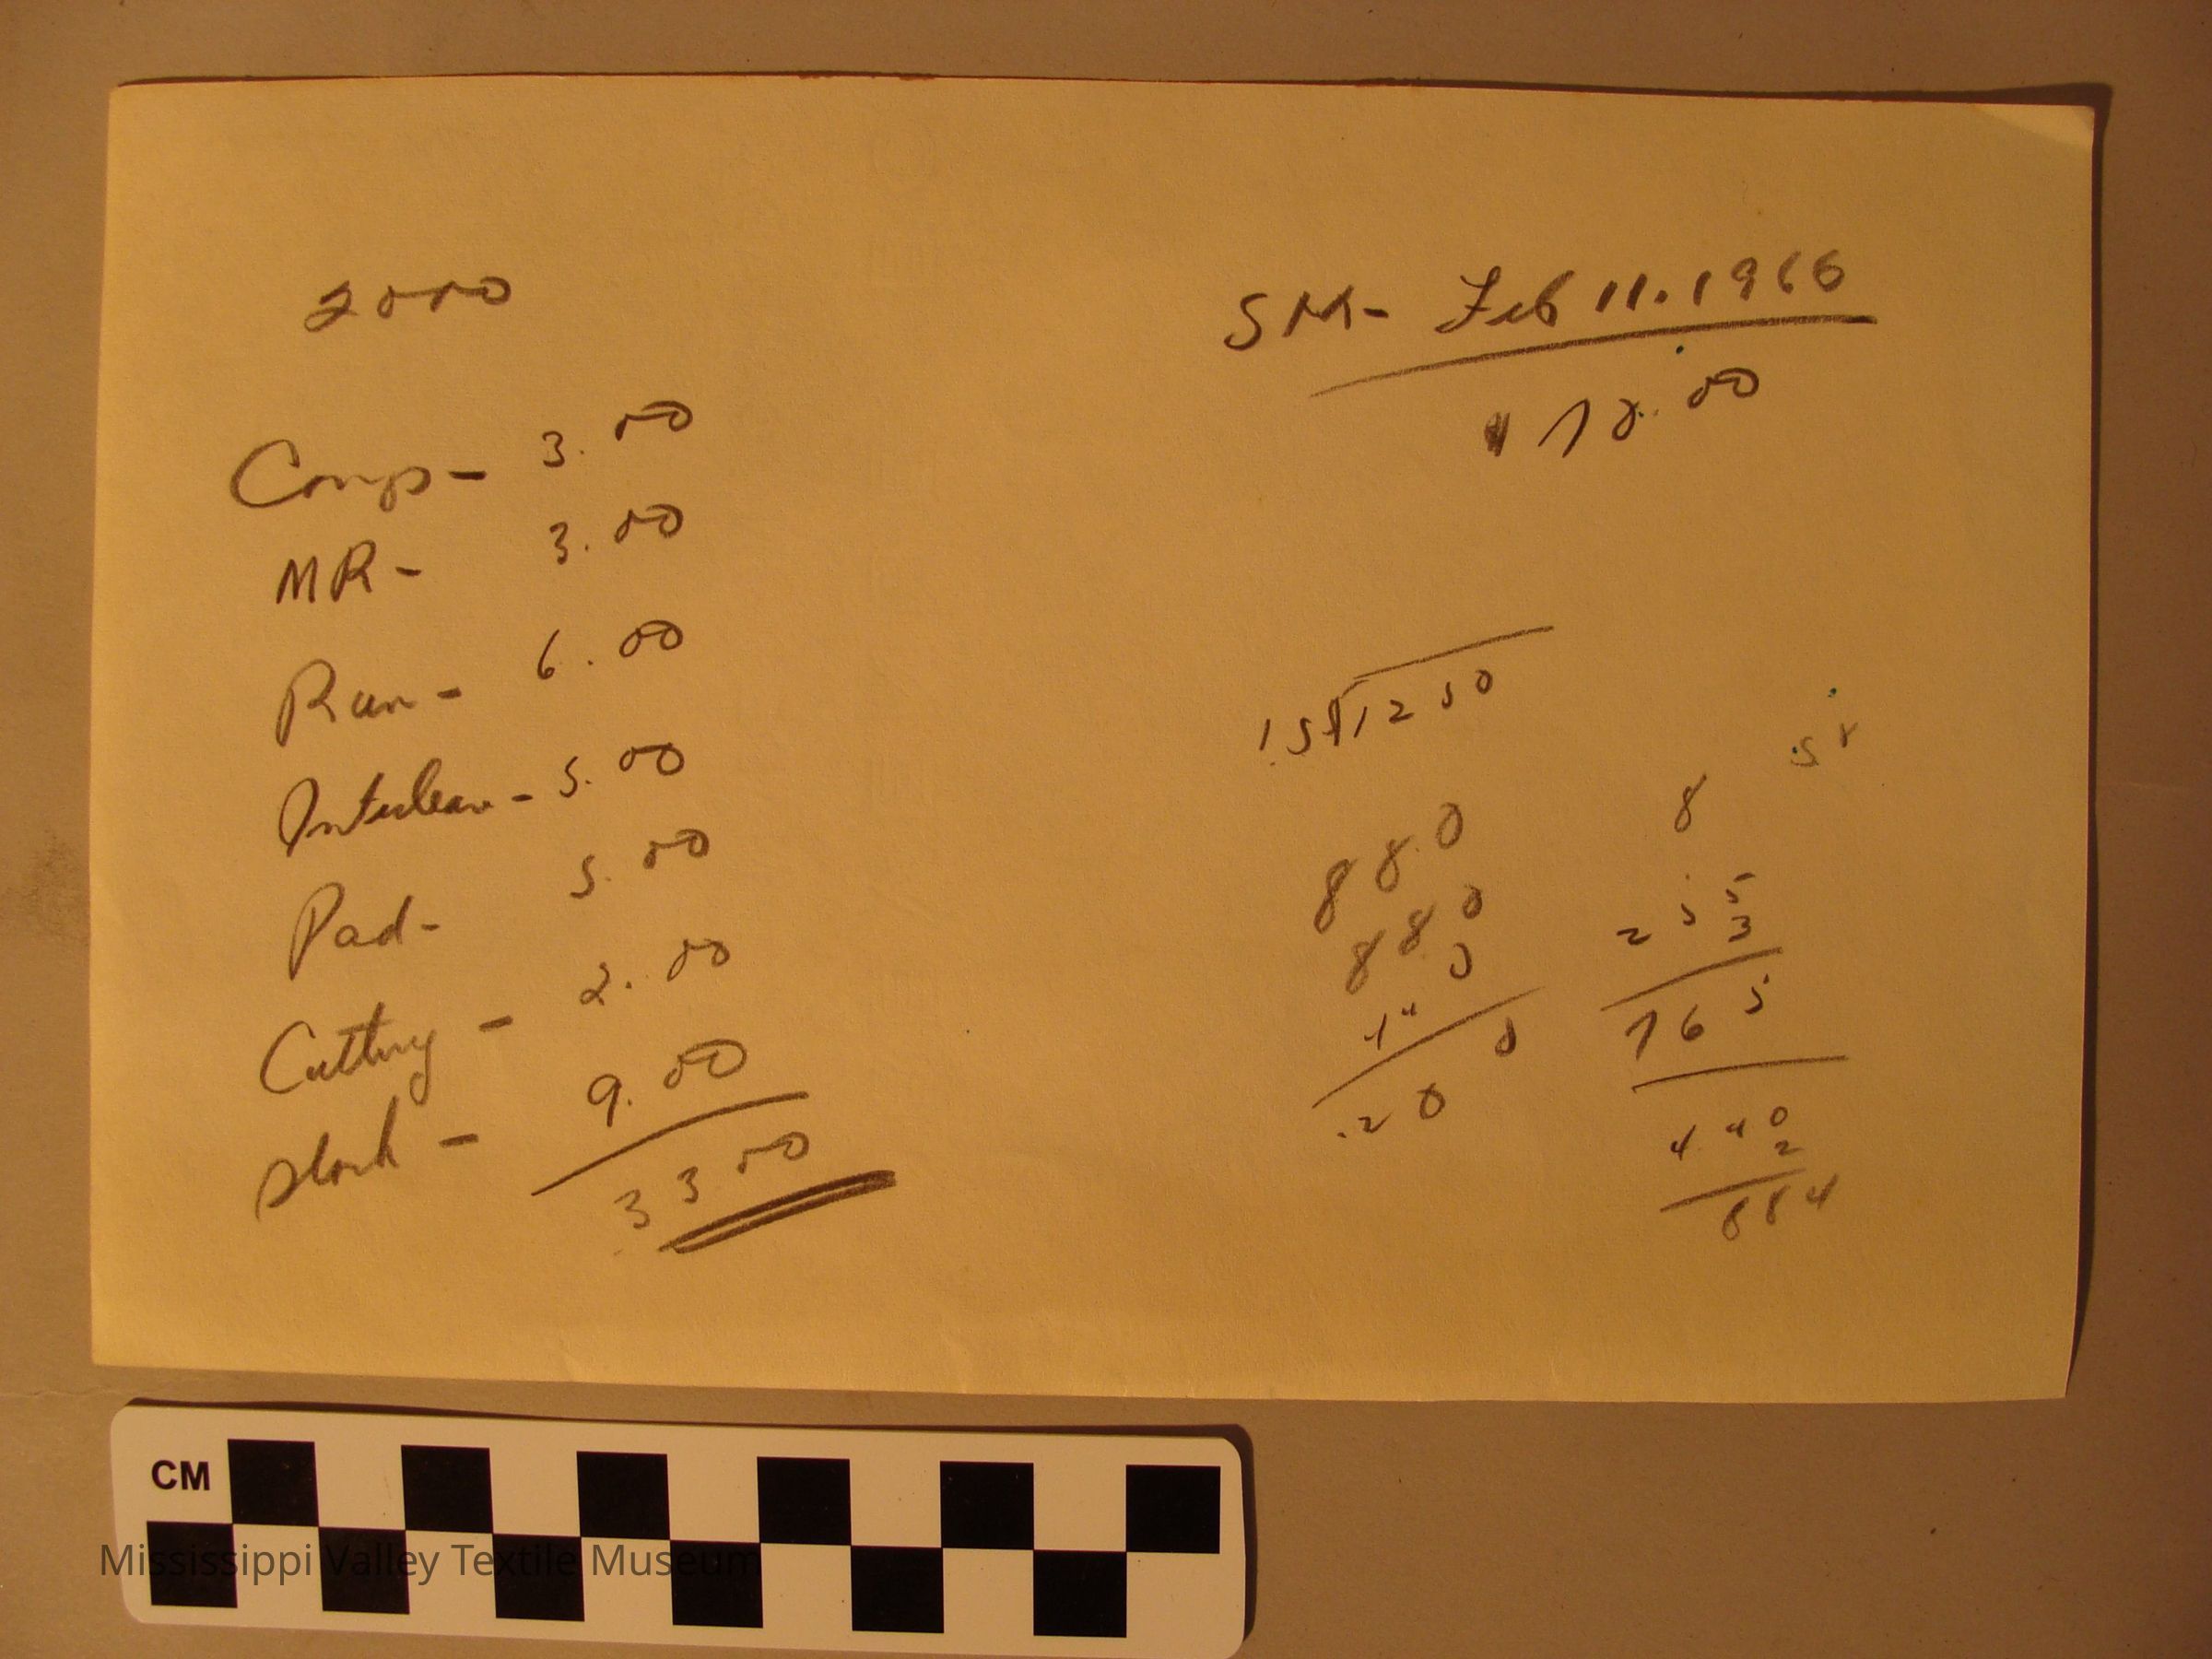 2000
Comp - 3.00
MR - 3.00
Run - 6.00
Interleave - 5.00
Pad - 5.00
Cutting - 2.00
Stock - 9.00
33.00
Feb 11. 1966
15 1250
880
880
440
8
255
3
765
440
2
884
CM
Mississippi Valley Textile Museum